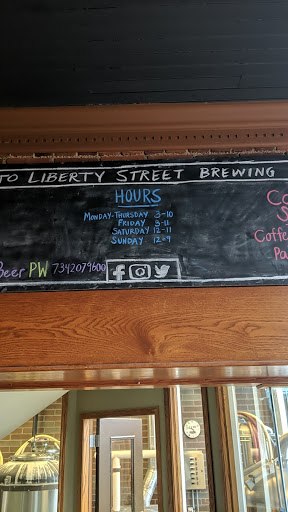 TO LIBERTY STREET BREWING
HOURS
MONDAY-THURSDAY 3-10
FRIDAY
SATURDAY 12-11
SUNDAY 12-9
Beer PW 7342079600
Coffe
Pa